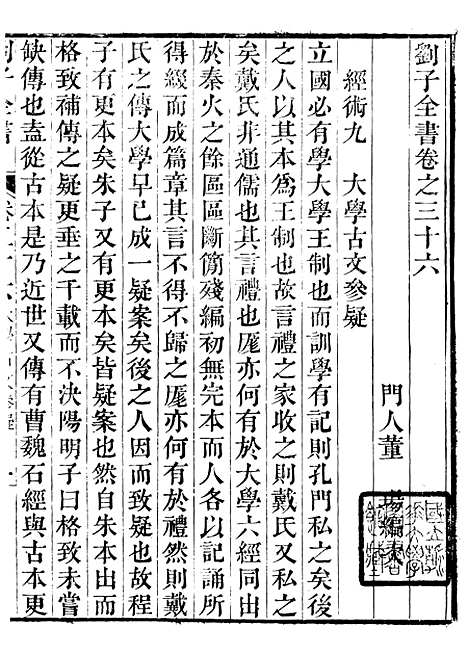 劉子全書卷之三十六
門人董 瑒編次
經術九 大學古文參疑
立國必有學大學王制也而訓學有記則孔門私之矣後
之人以其本爲王制也故言禮之家收之則戴氏又私之
矣戴氏非通儒也其言禮也厖亦何有於大學六經同出
於秦火之餘區區斷簡殘編初無完本而一時各以記誦所
得綴而成篇章其言不得不歸之厖亦何有於禮然則戴
氏之傳大學早已成一疑案矣後之人因而致疑也故程
子有更本矣朱子又有更本矣皆疑案也然自朱本出而
格致補傳之疑更垂之千載而不決陽明子曰格致未嘗
缺傳也盍從古本是乃近世又傳有曹魏石經與古本更